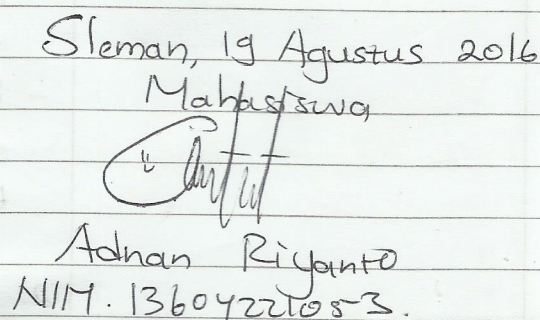 Sleman, 19 Agustus 2016
Mahasiswa
Adnan Riyanto
NIM. 13604221053.